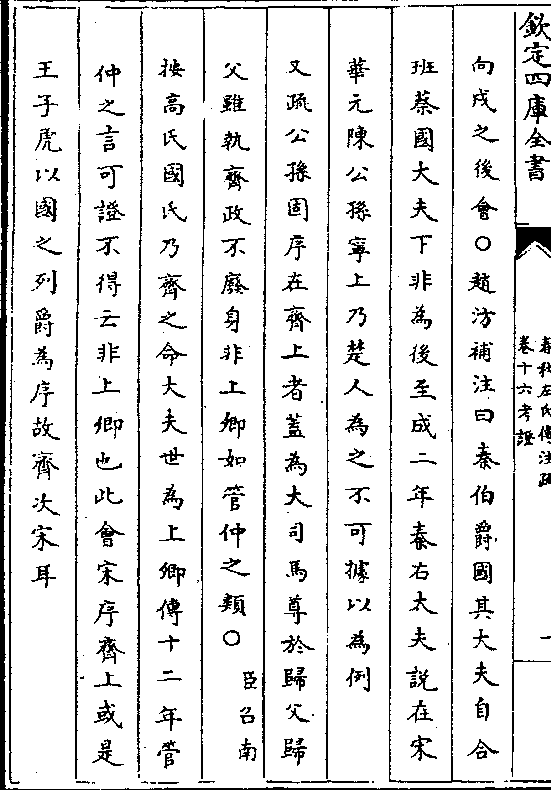 欽定四庫全書
春秋左氏傳注疏
卷十六考證
一
向戌之後會○趙汸補注曰秦伯爵國其大夫自合
班蔡國大夫下非為後至成二年秦右大夫說在宋
華元陳公孫寧上乃楚人為之不可據以為例
又疏公孫固序在齊上者蓋為大司馬尊於歸父歸
父雖執齊政不廢身非上卿如管仲之類○臣召南
按高氏國氏乃齊之命大夫世為上卿傳十二年管
仲之言可證不得云非上卿也此會宋序齊上或是
王子虎以國之列爵為序故齊次宋耳